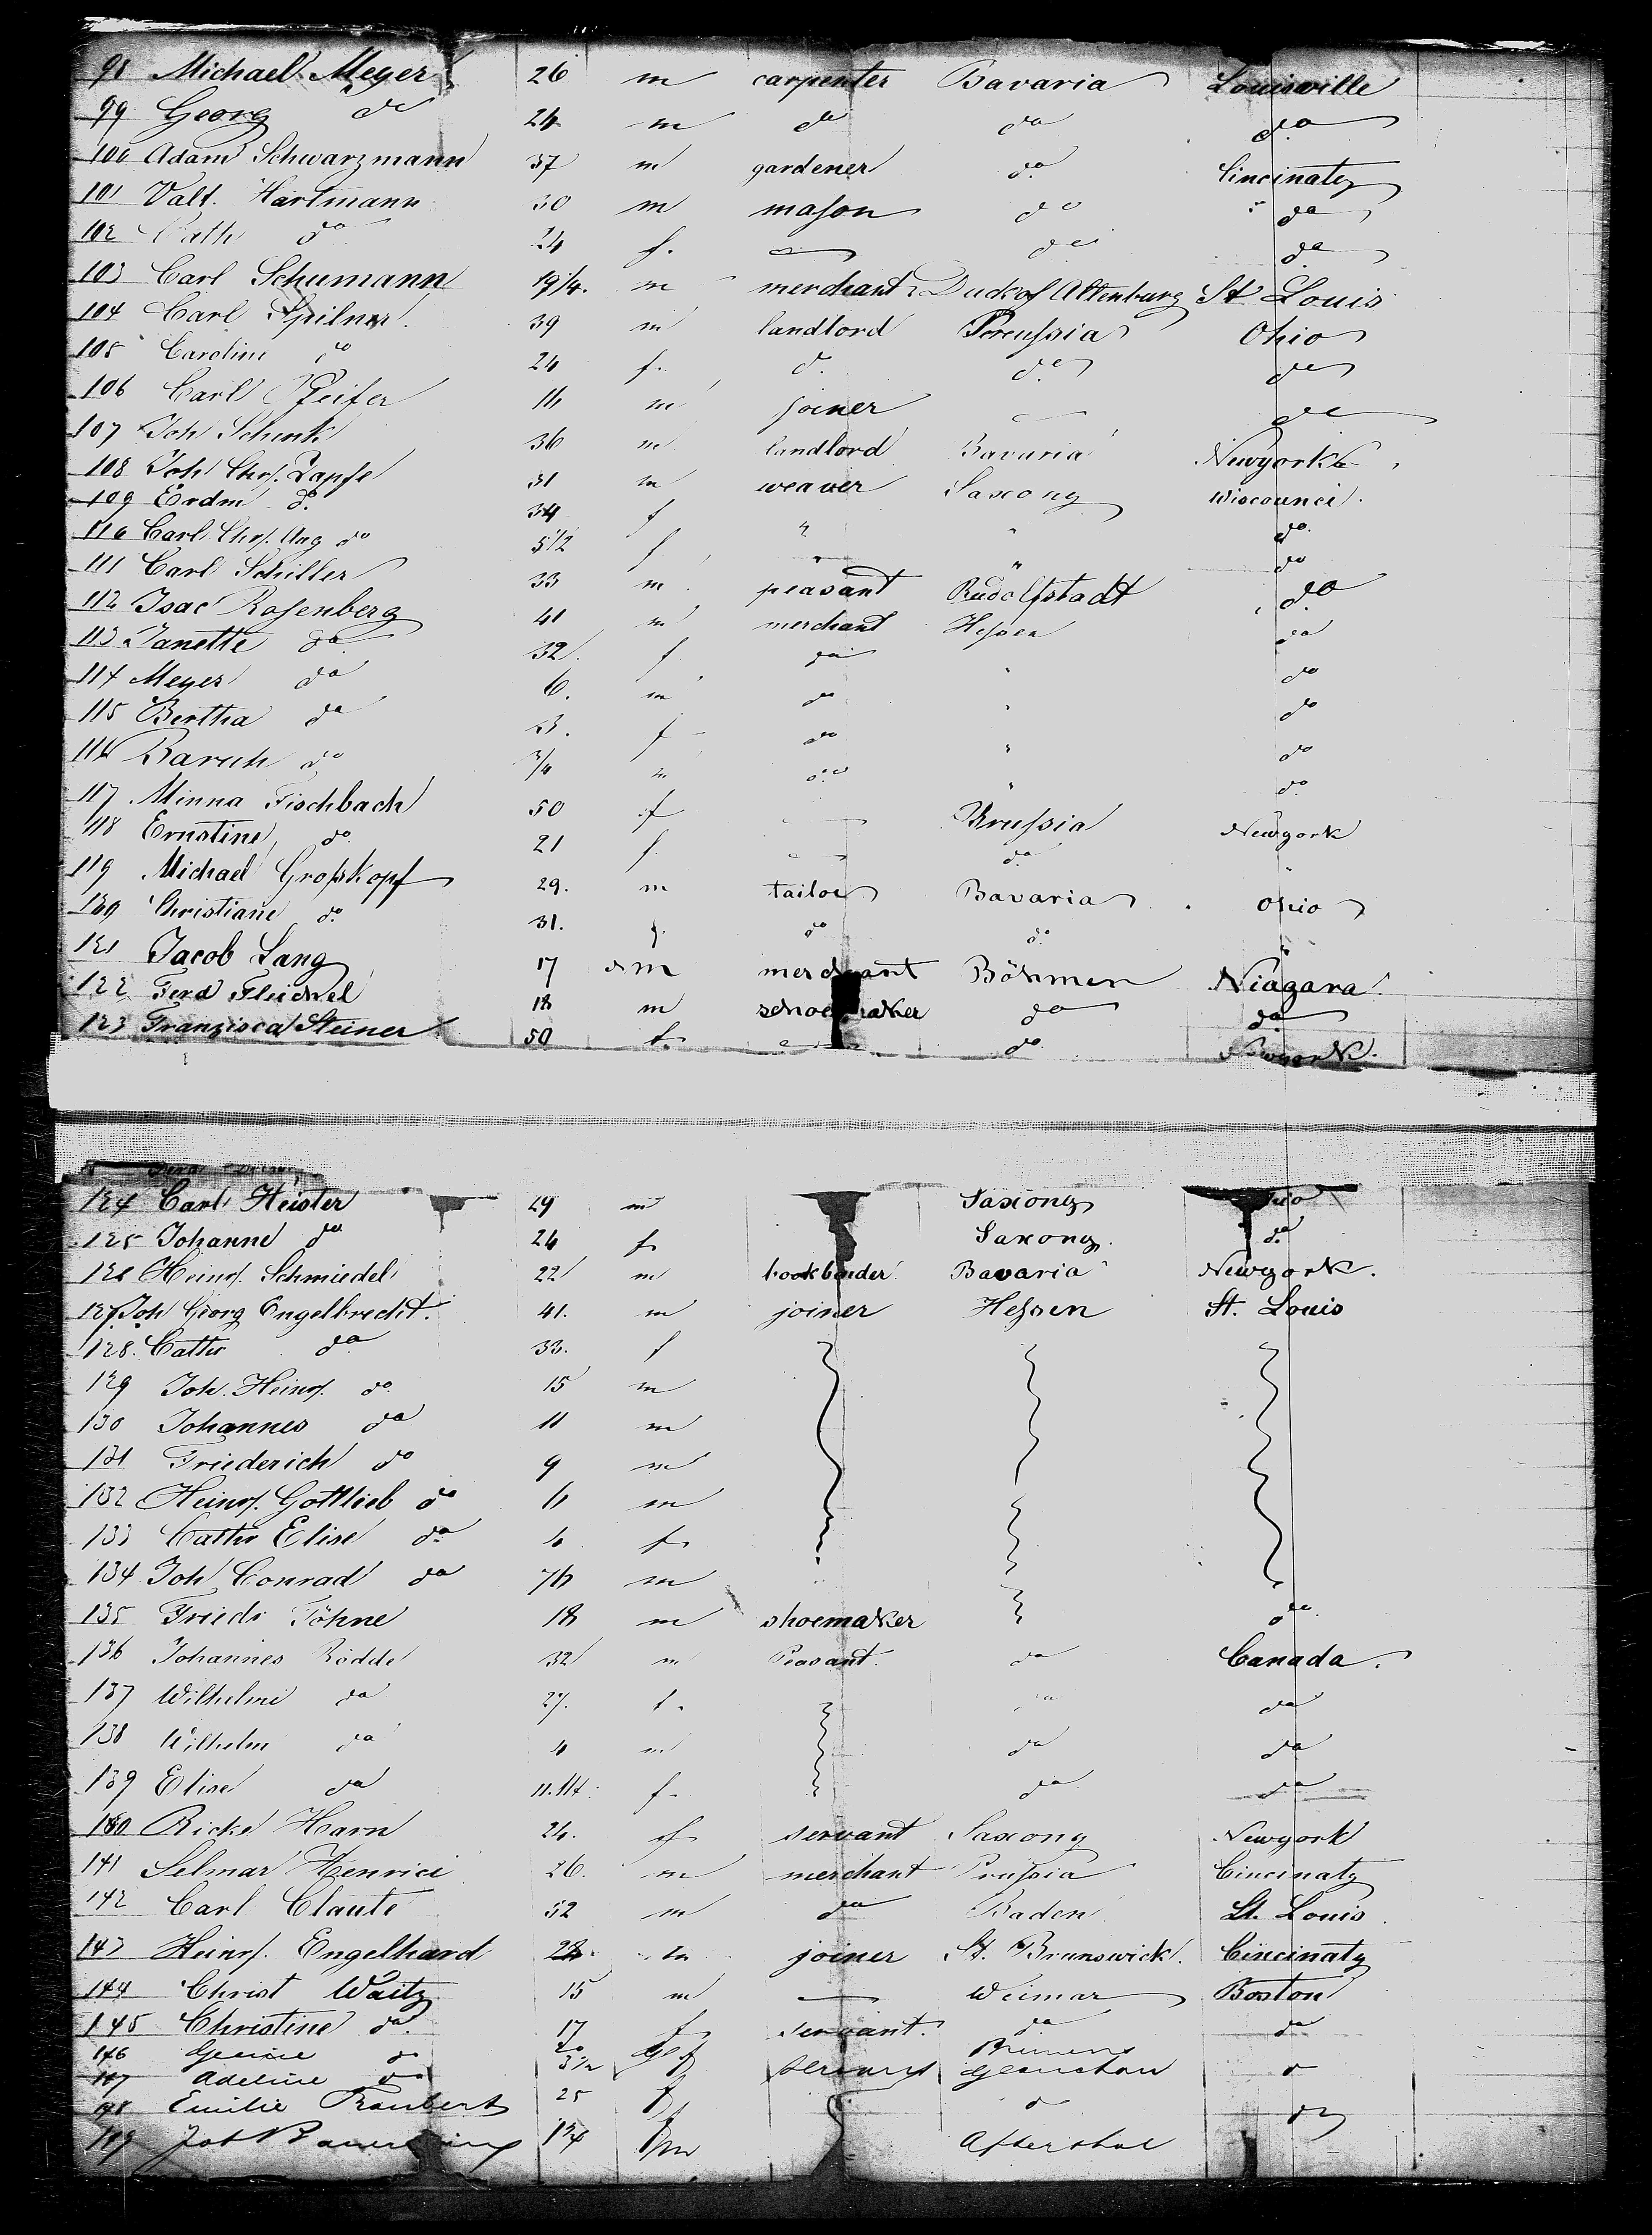 98 Michael Meyer 26 m carpenter Bavaria Louisville
99 Georg do 24 m do do do
100 Adam Schwarzmann 37 m gardener do Cincinaty
101 Valt. Hartmann 30 m mason do do
102 Cath do 24 f. — do do
103 Carl Schumann 19 1/4. m merchant Duckof Altenburg St Louis
104 Carl Spilner. 39 m landlord Preussia Ohio
105 Carolin do 24 f. d. do do
106 Carl Pfeifer m joiner — do
107 Joh Schink 36 m landlord Bavaria Newyork
108 Joh Chr. Zapfe 31 m weaver Saxony Wiscounci.
109 Erdm. do. 34 f " " do.
110 Carl Chr. Aug do 5 1/2 f — " do
111 Carl Schiller 33 m peasant Rudolfstadt do
112 Isac Rosenberg 41 m merchant Hessen do
113 Janette do 32. f do " do
114 Meyer do 6. m do " do
115 Bertha do f do " do
116 Baruch do 3/4 m do " do
117 Minna Fischbach 50 f — Prussia Newyork
118 Ernstine do 21 f — do "
119 Michael Großkopf 29. m tailor Bavaria Ohio
120 Christiane do. 31. f. do do. "
121 Jacob Lang 17 m merchant Böhmen Niagara.
122 Ferd Fleichel 18 m schoemaker do do
123 Franzisca Steiner 50 f. — do Newyork.
124 Carl Heister 29 m Saxony
125 Johanne do 24 f Saxony. do
126 Heinr. Schmiedel 22 m bookbinder Bavaria Newyork.
127 Joh Georg Engelbrecht. 41. m joiner Hessen St. Louis
128. Cathr do 33. f
129 Joh. Heinr. do 15 m
130 Johannes do 11 m
131 Friederich do 9 m
132 Heinr. Gottlieb do m
133 Cathr Elise do 4 f
134 Joh Conrad do m
135 Friedr Töhne 18 m shoemaker do
136 Johannes Rödde 32 m Peasant. do Canada.
137 Wilhelmi do 27. f. do do
138 Wilhelm do 4 m do do
139 Elise do f. do do
140 Ricke Harn 24. f servant Saxony Newyork
141 Selmar Henrici 26. m merchant Prussia Cincinaty
142 Carl Claute 52 m do Baden St. Louis
143 Heinr. Engelhard 28. m joiner St. Brunswick. Cincinaty
144 Christ Waitz 15 m — Weimar Boston
145 Christine do. 17 f servant. do do
146 do f
147 Adeline do servant do
148 Emilie Traubert 25 f do do
149 Joh m